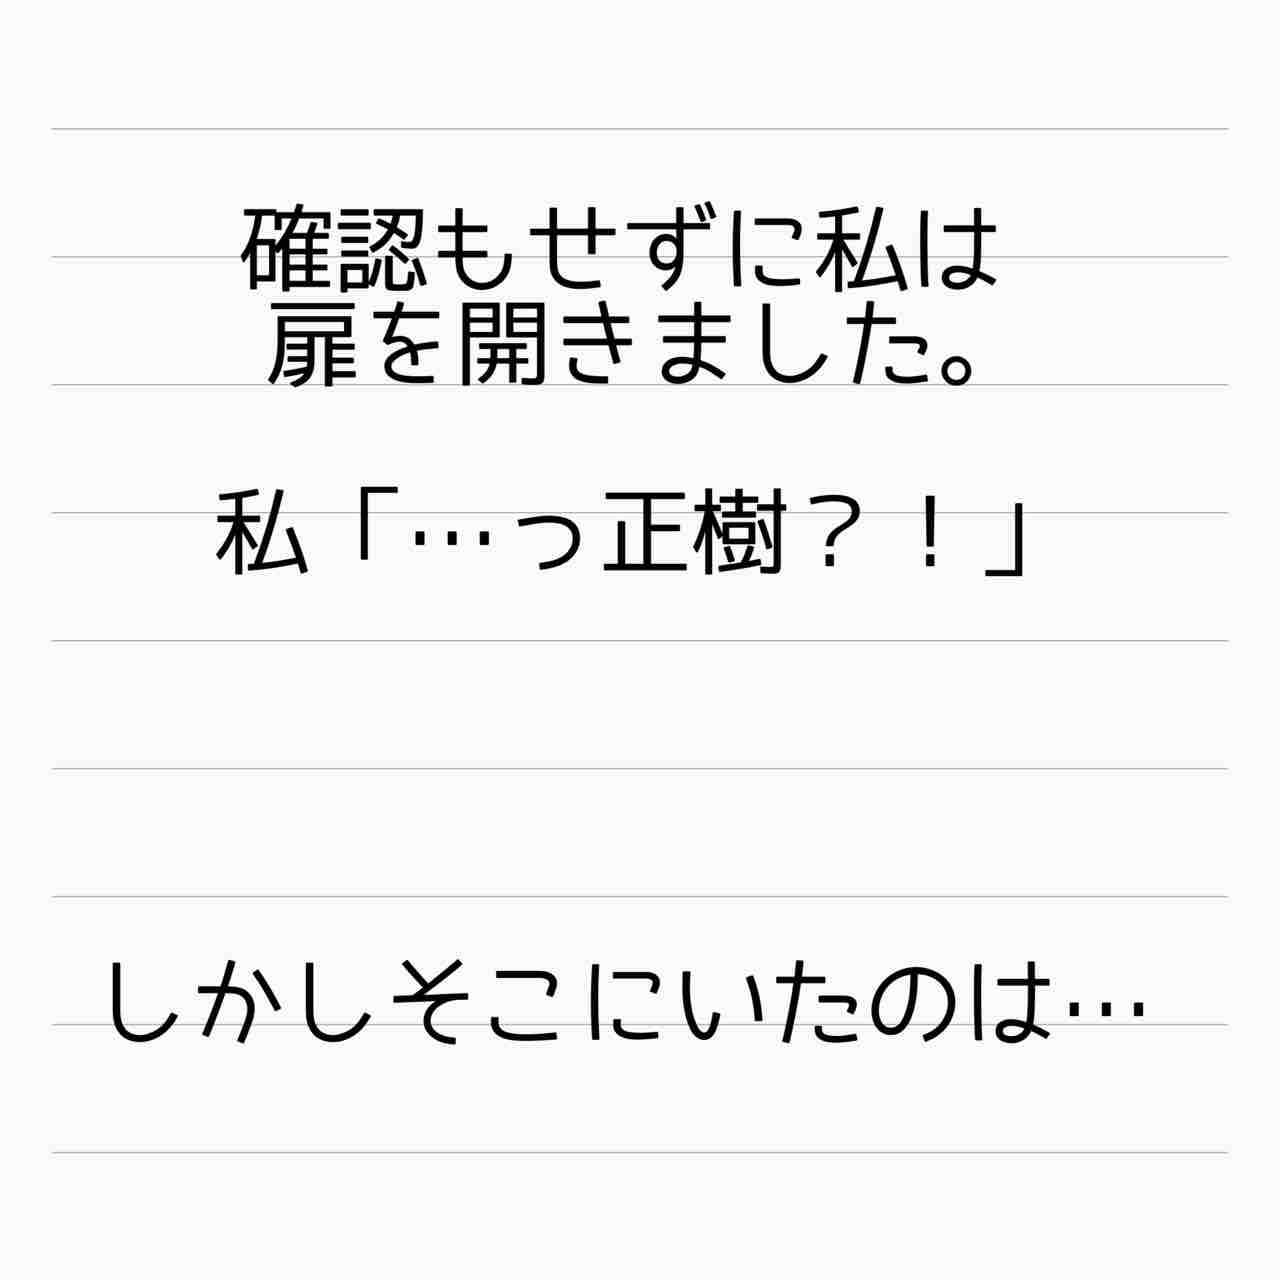 確認もせずに私は
扉を開きました。
私「…っ正樹？！」
しかしそこにいたのは…